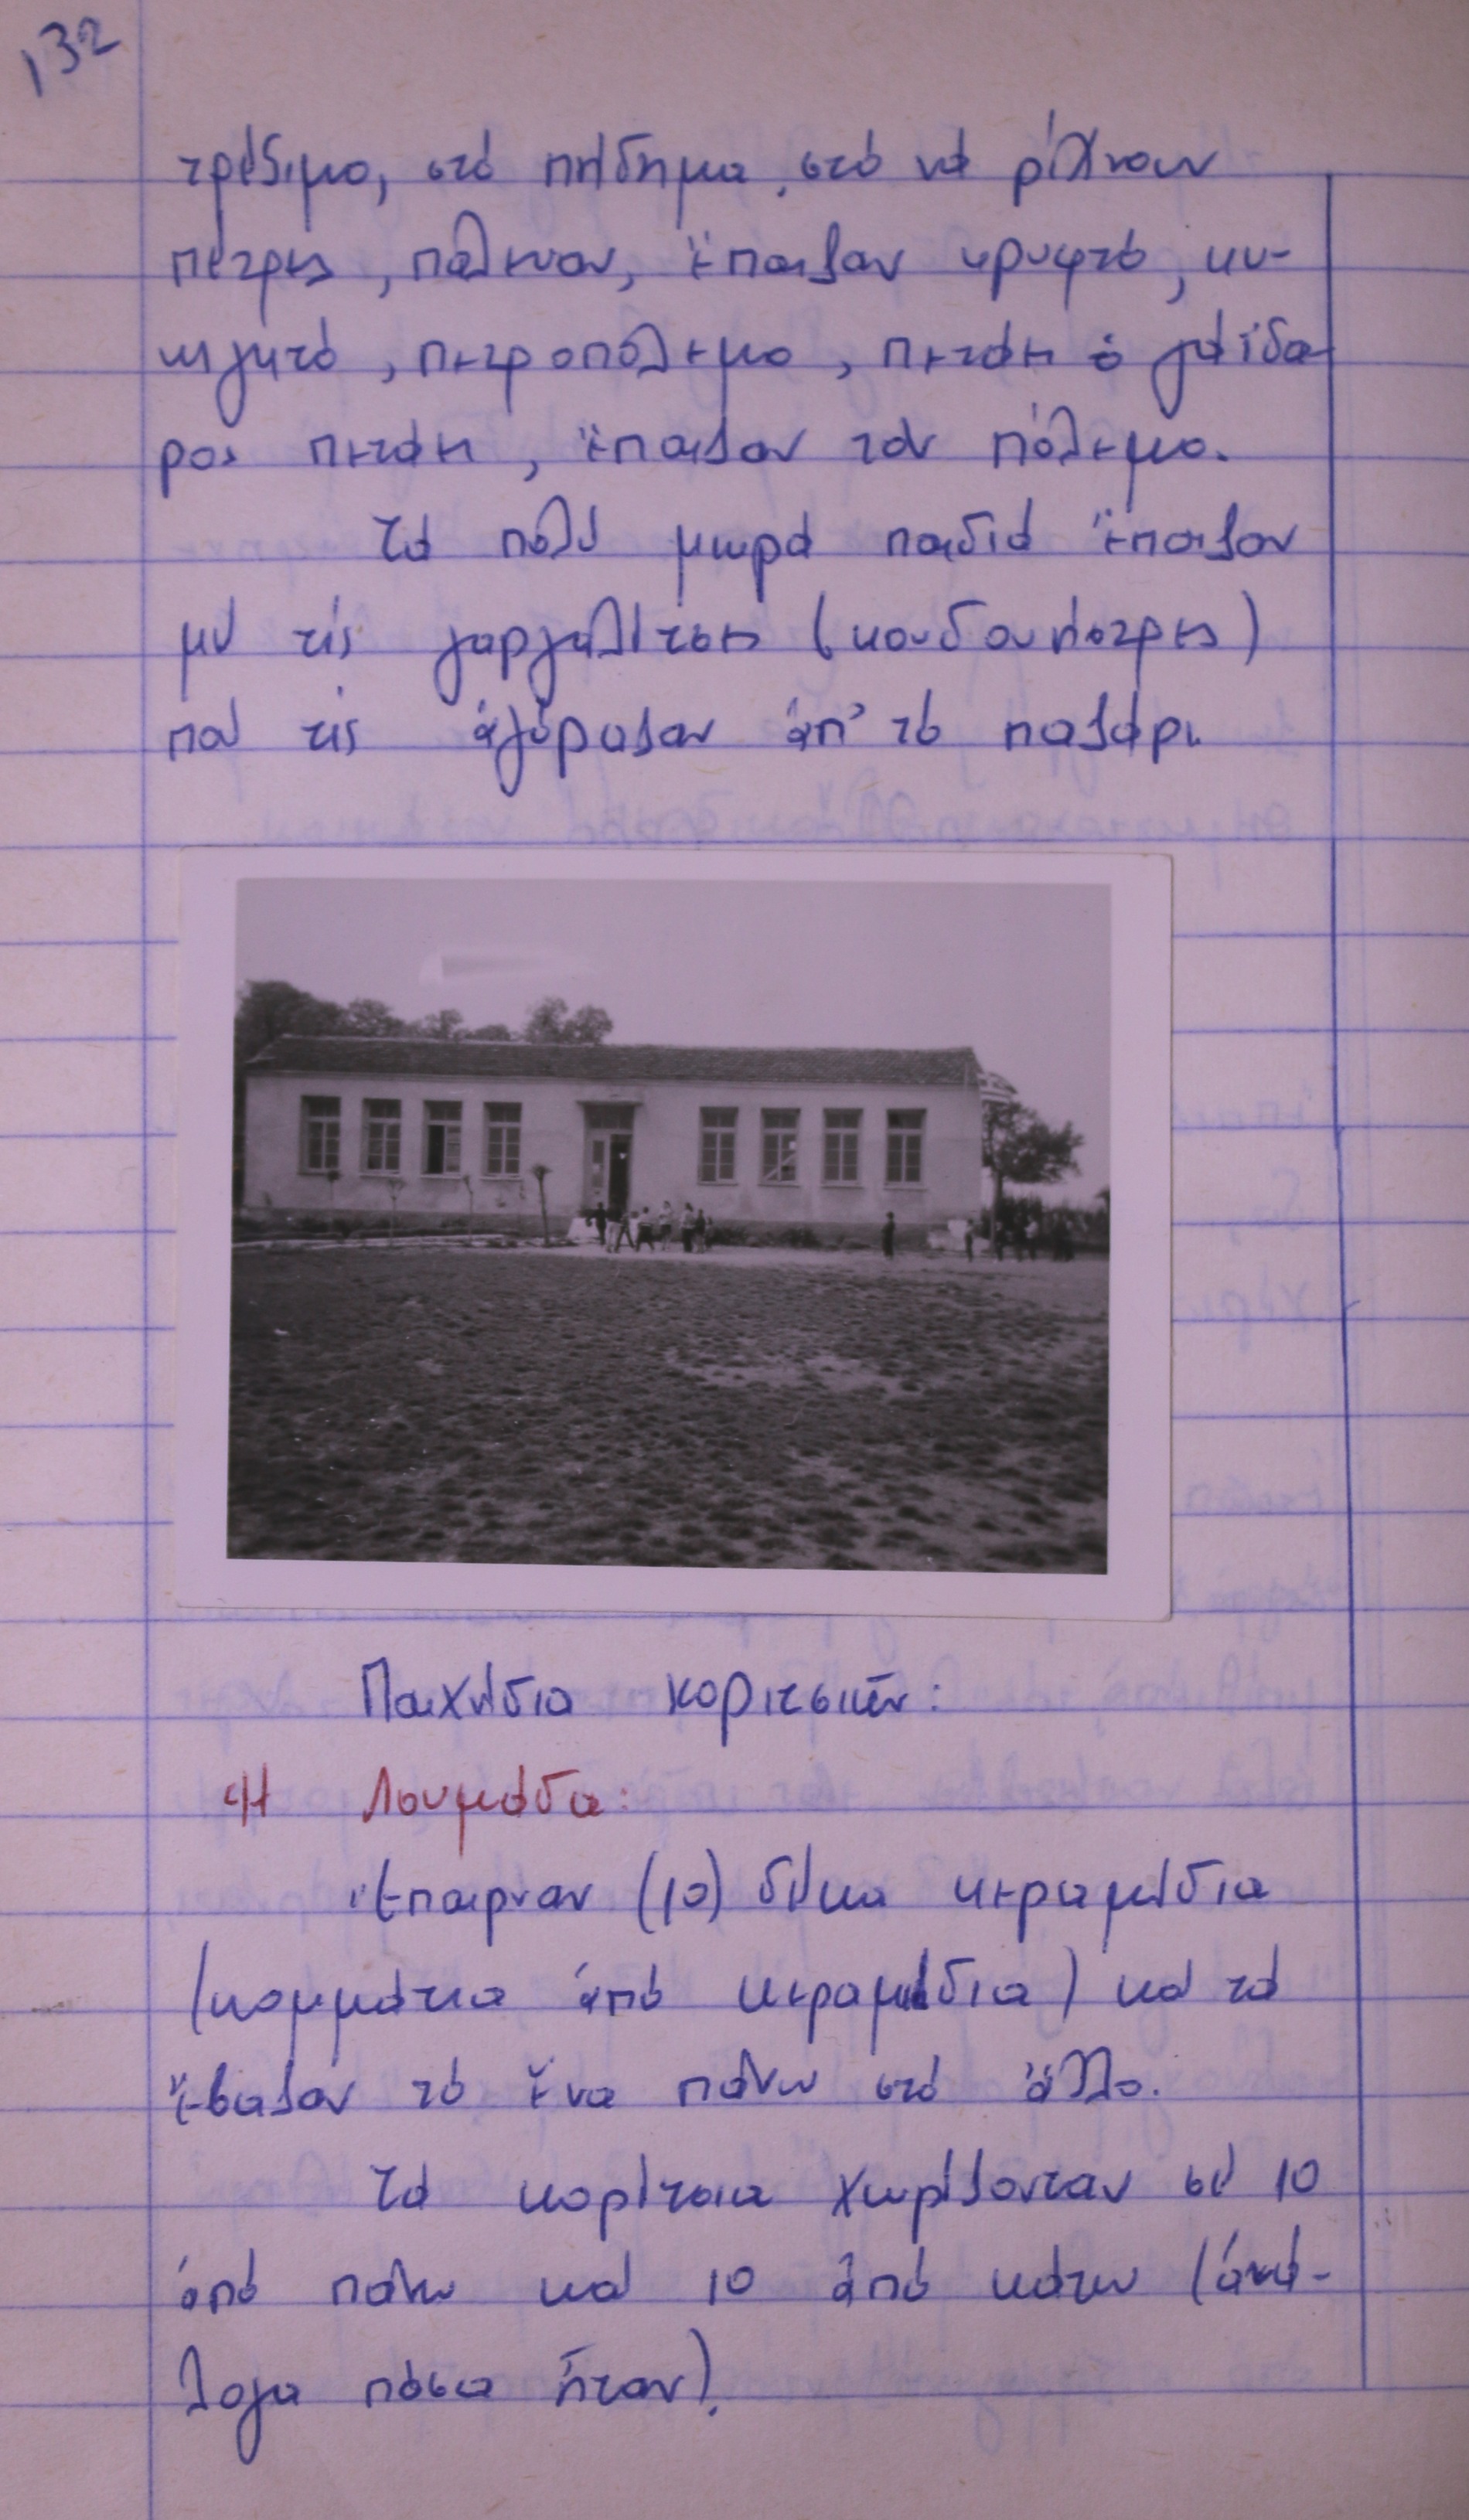 132
τρέξιμο, στό πήδημα, στό νά ρίχνουν
πέτρες, πάλευαν, ἔπαιζαν κρυφτό, κυ-
νηγητό, πετροπόλεμο, πετάει ὁ γάϊδα-
ρος πετάει, ἔπαιζαν τόν πόλεμο.
Τά πολύ μικρά παιδιά ἔπαιζαν
μέ τίς γαργαλίτσες (κουδουνίστρες)
πού τίς ἀγόραζαν ἀπ' τό παζάρι.
Παιχνίδια κοριτσιῶν:
Ἡ Λουμάδα:
Ἔπαιρναν (10) δέκα κεραμίδια
(κομμάτια ἀπό κεραμίδια) καί τά
ἔβαζαν τό ἕνα πάνω στό ἄλλο.
Τά κορίτσια χωρίζονταν σέ 10
ἀπό πάνω καί 10 ἀπό κάτω (ἀνά-
λογα πόσα ἦταν).